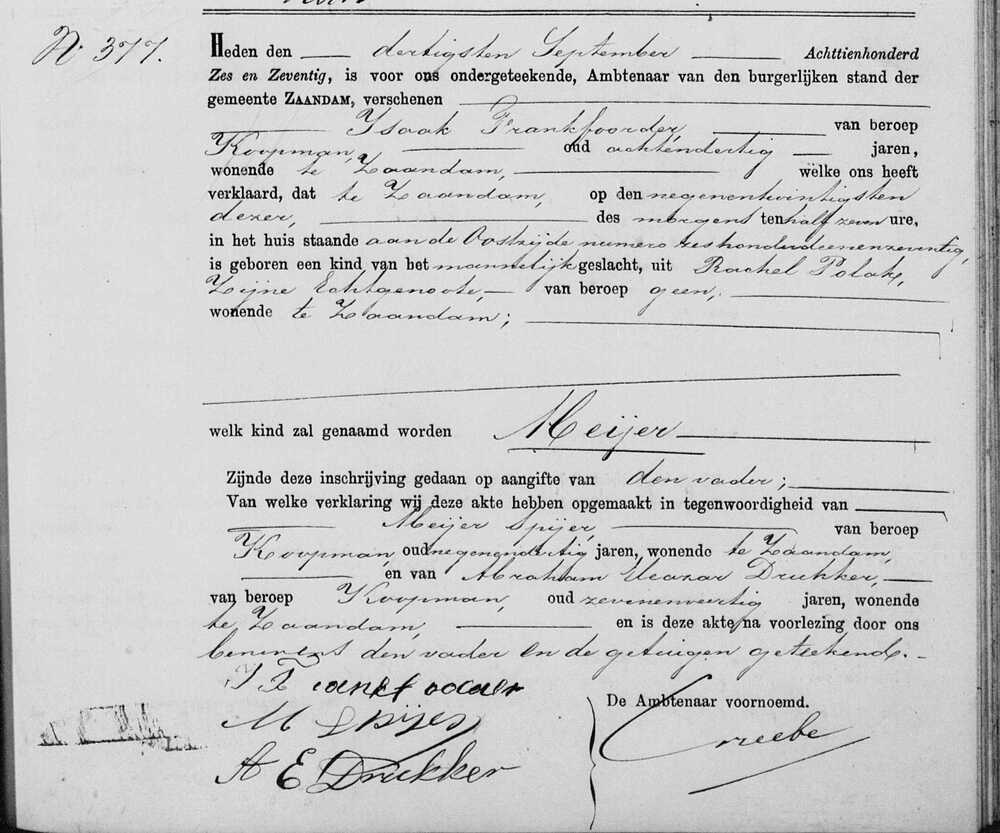 N. 377.
Heden den dertigsten September Achttienhonderd
Zes en Zeventig, is voor ons ondergeteekende, Ambtenaar van den burgerlijken stand der
gemeente ZAANDAM, verschenen
Isaak Frankfoorder, van beroep
Koopman, oud achtendertig jaren,
wonende te Zaandam, welke ons heeft
verklaard, dat te Zaandam, op den negenentwintigsten
dezer, des morgens ten half zeven ure,
in het huis staande aan de Oostzijde numero zeshonderdeenenzeventig,
is geboren een kind van het mannelijk geslacht, uit Rachel Polak,
Zijne Echtgenoote, van beroep geen,
wonende te Zaandam;
welk kind zal genaamd worden Meijer
Zijnde deze inschrijving gedaan op aangifte van den vader;
Van welke verklaring wij deze akte hebben opgemaakt in tegenwoordigheid van
Meijer Spijer, van beroep
Koopman, oud negenendertig jaren, wonende te Zaandam,
en van Abraham Eleazar Drukker,
van beroep Koopman, oud zevenenveertig jaren, wonende
te Zaandam, en is deze akte, na voorlezing door ons
benevens den vader en de getuigen geteekend.
I Frankfoorder
M Spijer
De Ambtenaar voornoemd.
A E Drukker